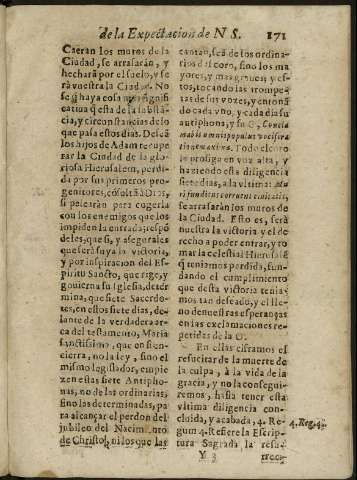 de la Expectacion de N S. 171
Caeràn los muros de la
Ciudad, se arrasaràn, y
hecharà por el suelo, y se
rà vuestra la Ciudad. No
se q̃ haya cosa mas signifi
cativa q̃ esta de la substã
cia, y circunstancias de lo
que passa estos dias. Deseã
los hijos de Adam recupe
rar la Ciudad de la glo-
riosa Hierusalem, perdi-
da por sus primeros pro-
genitores,
si pelearàn para cogerla
con los enemigos que los
impiden la entrada; respõ
deles, que si, y asegurales
que serà suya la victoria,
y por inspiracion del Es-
piritu Sancto, que rige, y
govierna su Iglesia, deter-
mina, que siete Sacerdo-
tes, en estos siete dias, de-
lante de la verdadera ar-
ca del testamento, Maria
sanctissima, que en si en-
cierra, no la ley, sino el
mismo legislador, empie
zen estas siete Antipho-
nas, no de las ordinarias,
sino las determinadas, pa
ra alcançar el perdon del
jubileo del Nacimiento
de Christo, ni los que las
cantan, seã de los ordina-
rios del coro, sino los ma
yores, y mas graves; y es-
tos, tocando las trompe-
tas de sus vozes, y entonã
do cada vno, y cada dia su
antiphona, y su O, Concla
mabit omnis populus vocifera
tione maxima. Todo el coro
la prosiga en voz alta, y
haziendo esta diligencia
siete dias, a la vltima: Mu
ri funditus corruent civitatis,
se arrasaràn los muros de
la Ciudad. Esto es, serà
nuestra la victoria y el de
recho a poder entrar, y to
mar la celestial Hierusalẽ
q̃ teniamos perdida, fun-
dando el cumplimiento
que desta victoria tenia-
mos tan deseado, y el lle-
no de nuestras esperanças
en las exclamaciones re-
petidas de la O.
En ellas ciframos el
resucitar de la muerte de
la culpa, à la vida de la
gracia, y no la consegui-
remos, hasta tener esta
vltima diligencia con-
cluida, y acabada, 4. Re-
gum 4. Refiere la Escrip-
tura Sagrada, la resu-
4. Reg. 4.
Y 3 rrec-